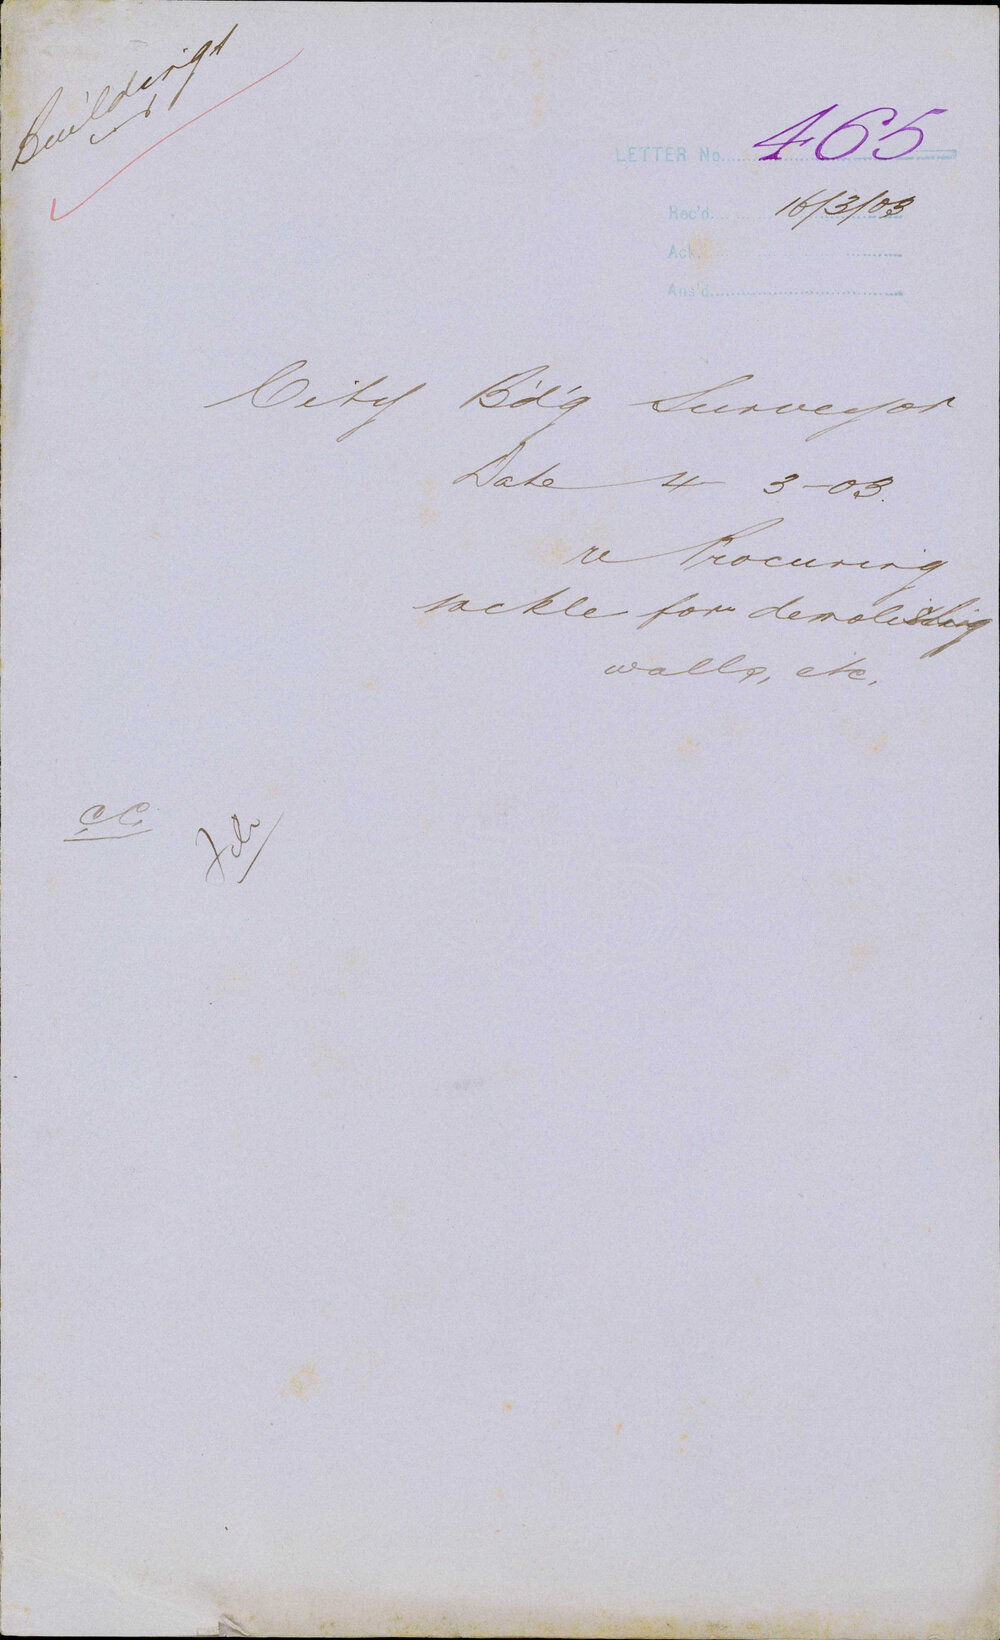 Buildings
LETTER No. 465
Rec'd. 16/3/03
Ack.
Ans'd.
City B'd'g Surveyor
Date 4 3-03.
re Procuring
tackle for demolishing
walls, etc.
C.C.
File